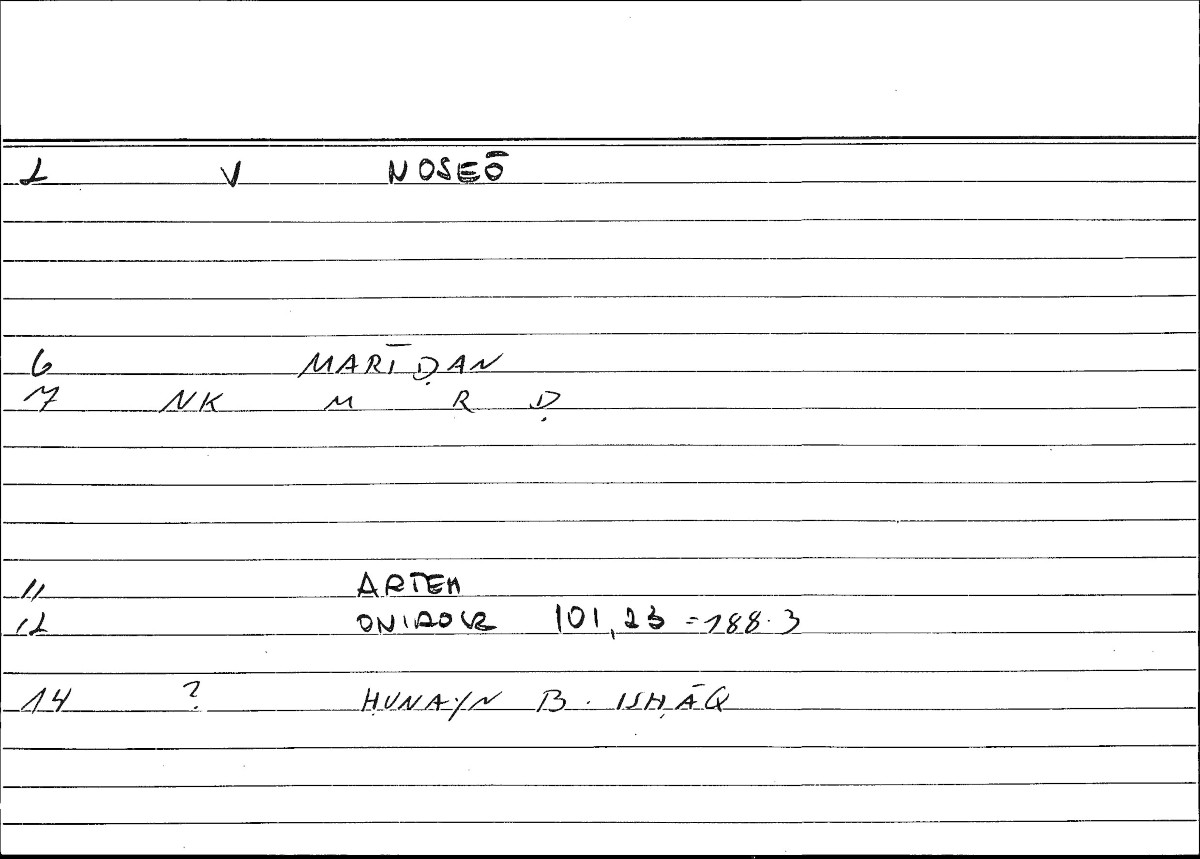 1 V NOSEŌ
6 MARĪḌAN
7 NK M R Ḍ
11 ARTEM
12 ONIROCR 101,23 =188.3
14 ? ḤUNAYN B. ISḤĀQ